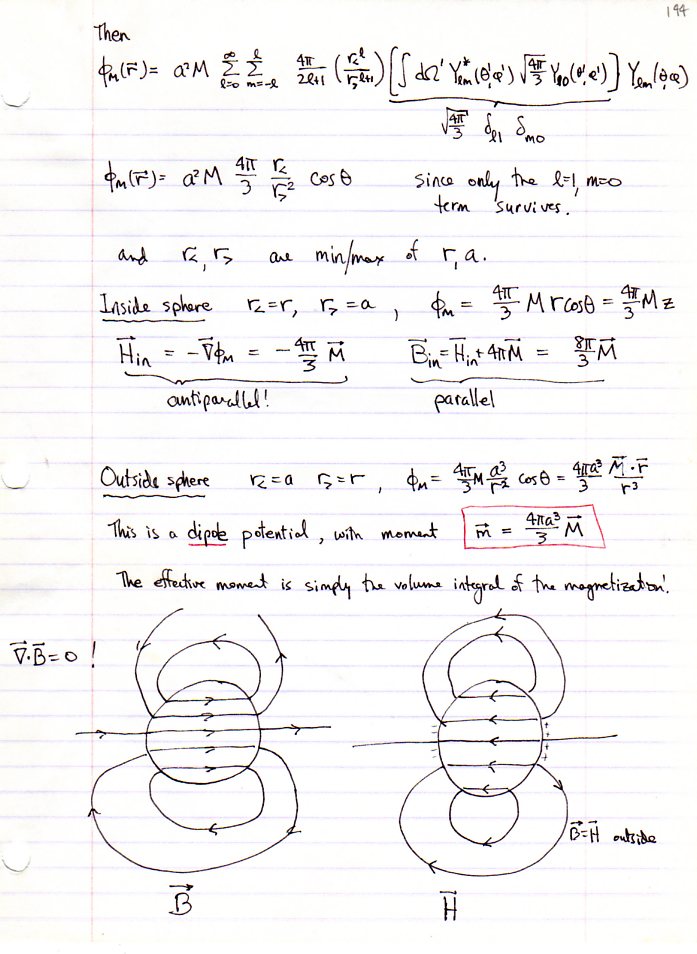 194
Then
ϕₘ(r⃗) = a²M ∑_{l=0}^{∞} ∑_{m=-l}^{l} 4π/(2l+1) (r<^l / r>^{l+1}) [∫ dΩ' Y*_{lm}(θ',φ') √(4π/3) Y_{10}(θ',φ')] Y_{lm}(θ,φ)
√(4π/3) δ_{l1} δ_{m0}
ϕₘ(r⃗) = a²M 4π/3 r< / r>² cosθ since only the l=1, m=0
term survives.
and r<, r> are min/max of r, a.
Inside sphere r< = r, r> = a , ϕₘ = 4π/3 M r cosθ = 4π/3 M z
H⃗in = -∇⃗ϕₘ = -4π/3 M⃗ B⃗in = H⃗in + 4πM⃗ = 8π/3 M⃗
antiparallel! parallel
Outside sphere r< = a r> = r , ϕₘ = 4π/3 M a³/r² cosθ = 4πa³/3 M⃗·r⃗/r³
This is a dipole potential, with moment m⃗ = 4πa³/3 M⃗
The effective moment is simply the volume integral of the magnetization!
∇⃗·B⃗ = 0 !
B⃗ = H⃗ outside
B⃗ H⃗